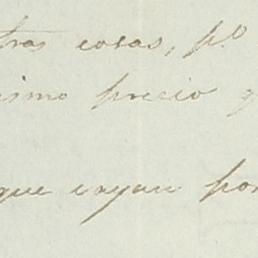 tras cosas, p.º
ismo precio q
que vayan por